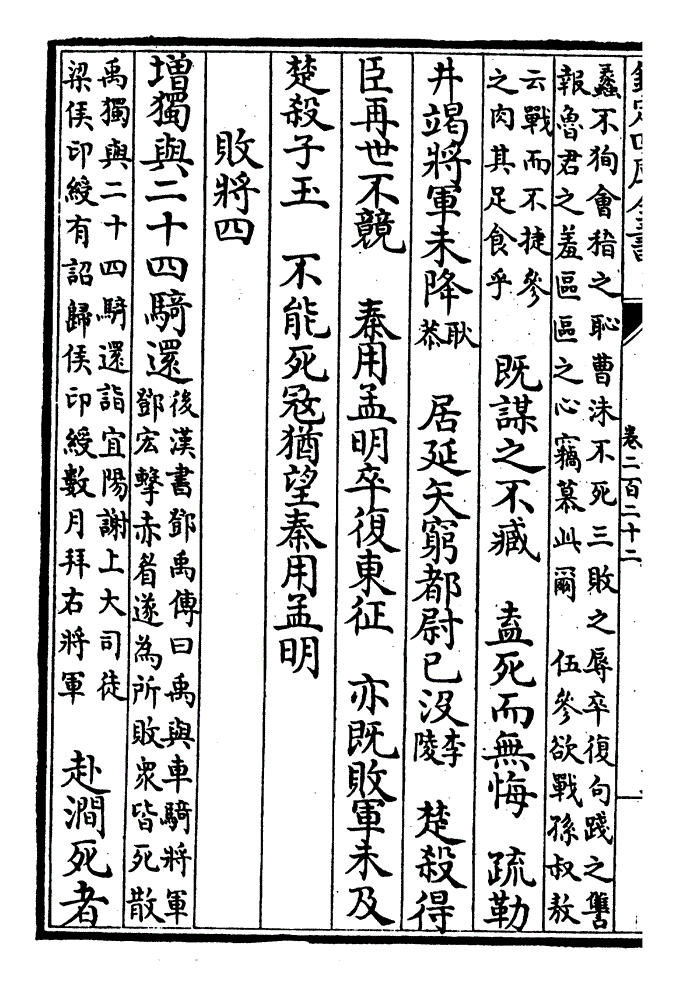 欽定四庫全書
卷二百二十二
蠡不狥會稽之恥曹沬不死三敗之辱卒復句踐之讐
報魯君之羞區區之心竊慕此爾　伍參欲戰孫叔敖
云戰而不捷參
之肉其足食乎
既謀之不臧　盍死而無悔　疏勒
井竭將軍未降耿
恭　居延矢窮都尉已沒李
陵　楚殺得
臣再世不競　秦用孟明卒復東征　亦既敗軍未及
楚殺子玉　不能死冦猶望秦用孟明
敗將四
增獨與二十四騎還後漢書鄧禹傳曰禹與車騎將軍
鄧宏擊赤眉遂為所敗衆皆死散
禹獨與二十四騎還詣宜陽謝上大司徒
梁侯印綬有詔歸侯印綬數月拜右將軍
赴澗死者